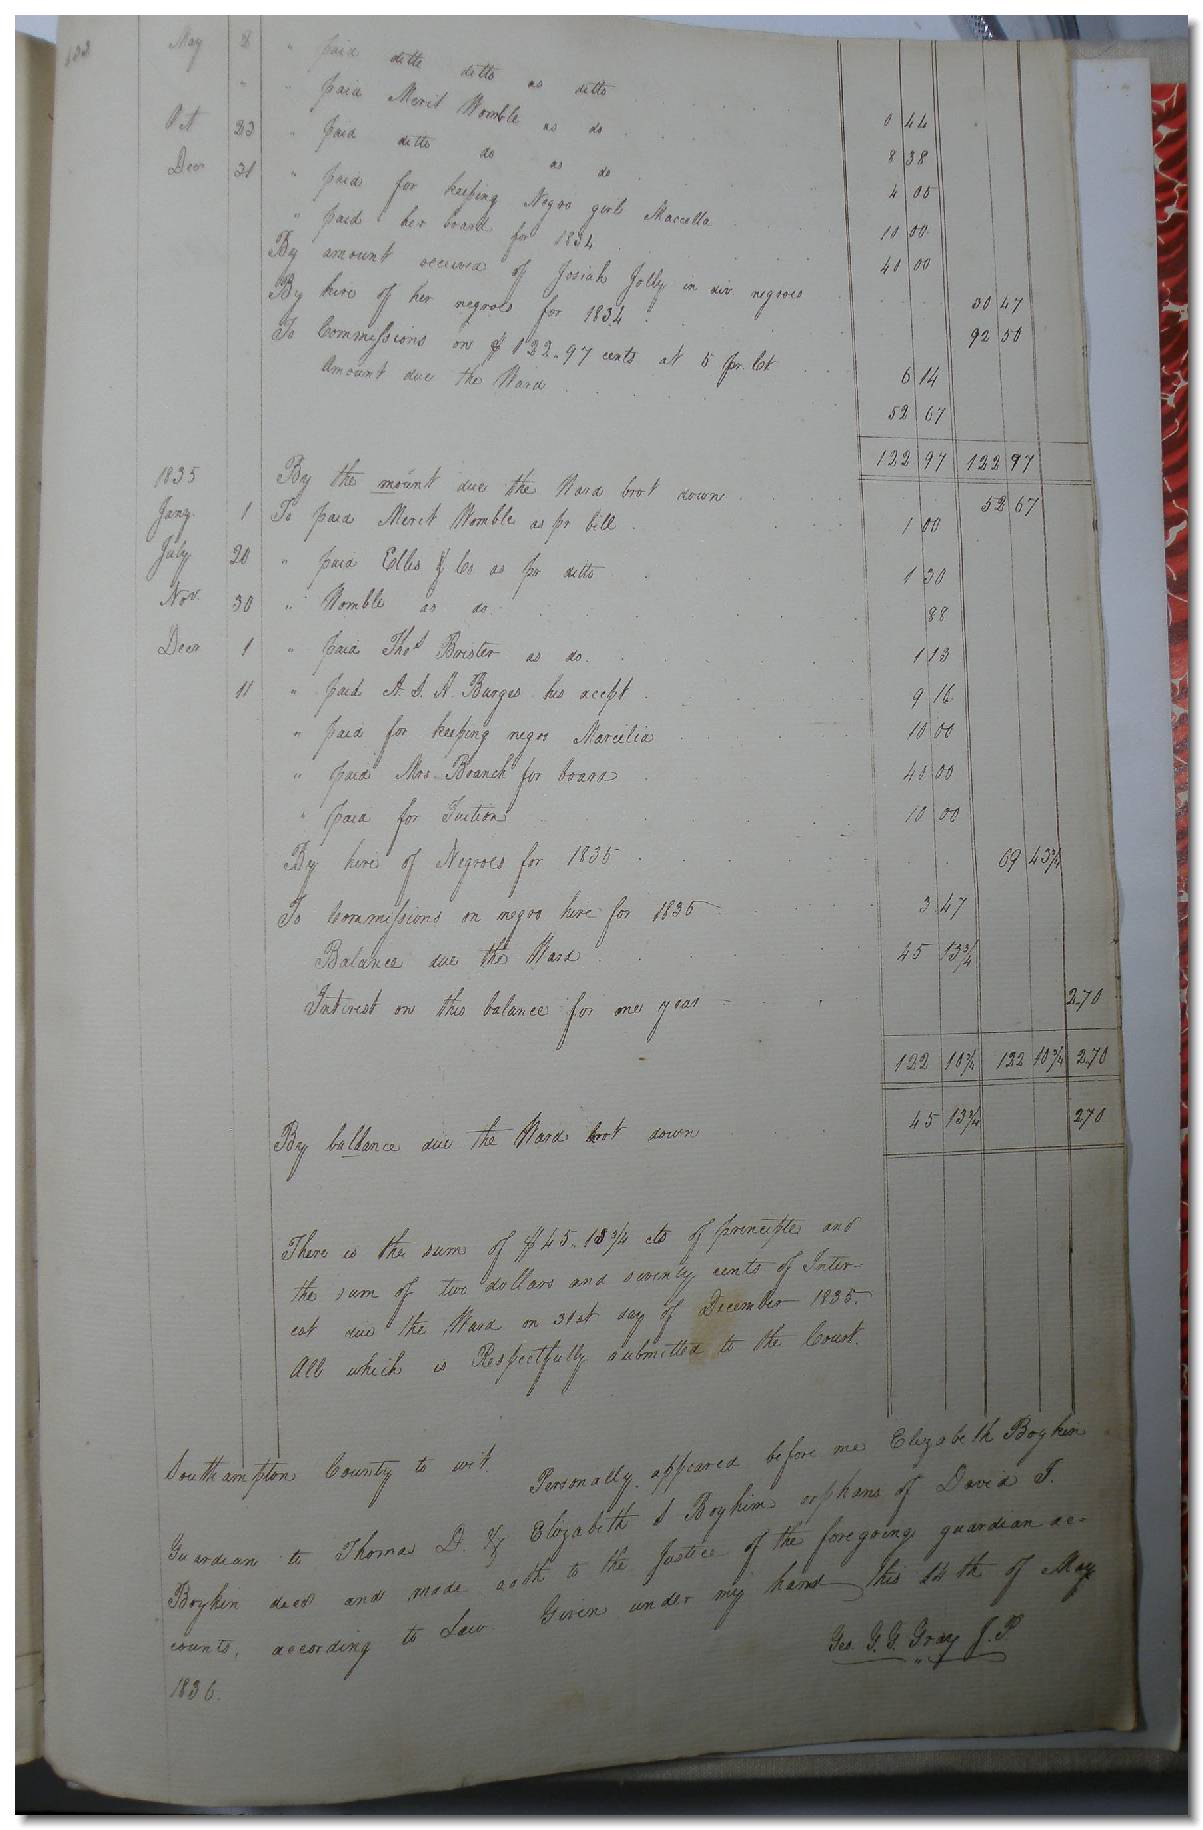 132
May 8 " paid ditto ditto as ditto 0 44
" " paid Merit Womble as do 8 38
Oct 23 " paid ditto do as do 4 05
Decr 31 " paid for keeping Negro girl Marcella 10 00
" paid her board for 1834 40 00
By amount received of Josiah Jolly in div. negroes 30 47
By hire of her negroes for 1834 92 50
To Commissions on $122.97 cents at 5 pr. Ct 6 14
Amount due the Ward 52 67
122 97 122 97
1835 By the mount due the Ward brot down 52 67
Jany 1 To paid Merit Womble as pr bill 1 00
July 20 " paid Elles & Co as pr ditto 1 30
Nov. 30 " Womble as do. 88
Decr 1 " paid Thos Brister as do. 1 13
11 " paid A. S. A. Burges his acept 9 16
" paid for keeping negro Marcelia 10 00
" paid Mrs. Branch for board 40 00
" paid for Tuition 10 00
By hire of Negroes for 1835 69 43¾
To Commissions on negro hire for 1835 3 47
Balance due the Ward 45 13¾
Interest on this balance for one year 270
122 10¾ 122 10¾ 270
By baldance due the Ward brot down 45 13¾ 270
There is the sum of $45.13¾ cts of principle and
the sum of two dollars and seventy cents of Inter-
est due the Ward on 31st day of December 1835.
All which is Respectfully submitted to the Court.
Southampton County to wit. Personally appeared before me Elizabeth Boykin
Guardian to Thomas D. & Elizabeth S Boykin orphans of David T.
Boykin decd and made aoth to the Justice of the foregoing guardian ac-
counts, according to Law. Given under my hand this 14th of May
1836.
Geo. G. G. Gray J. P